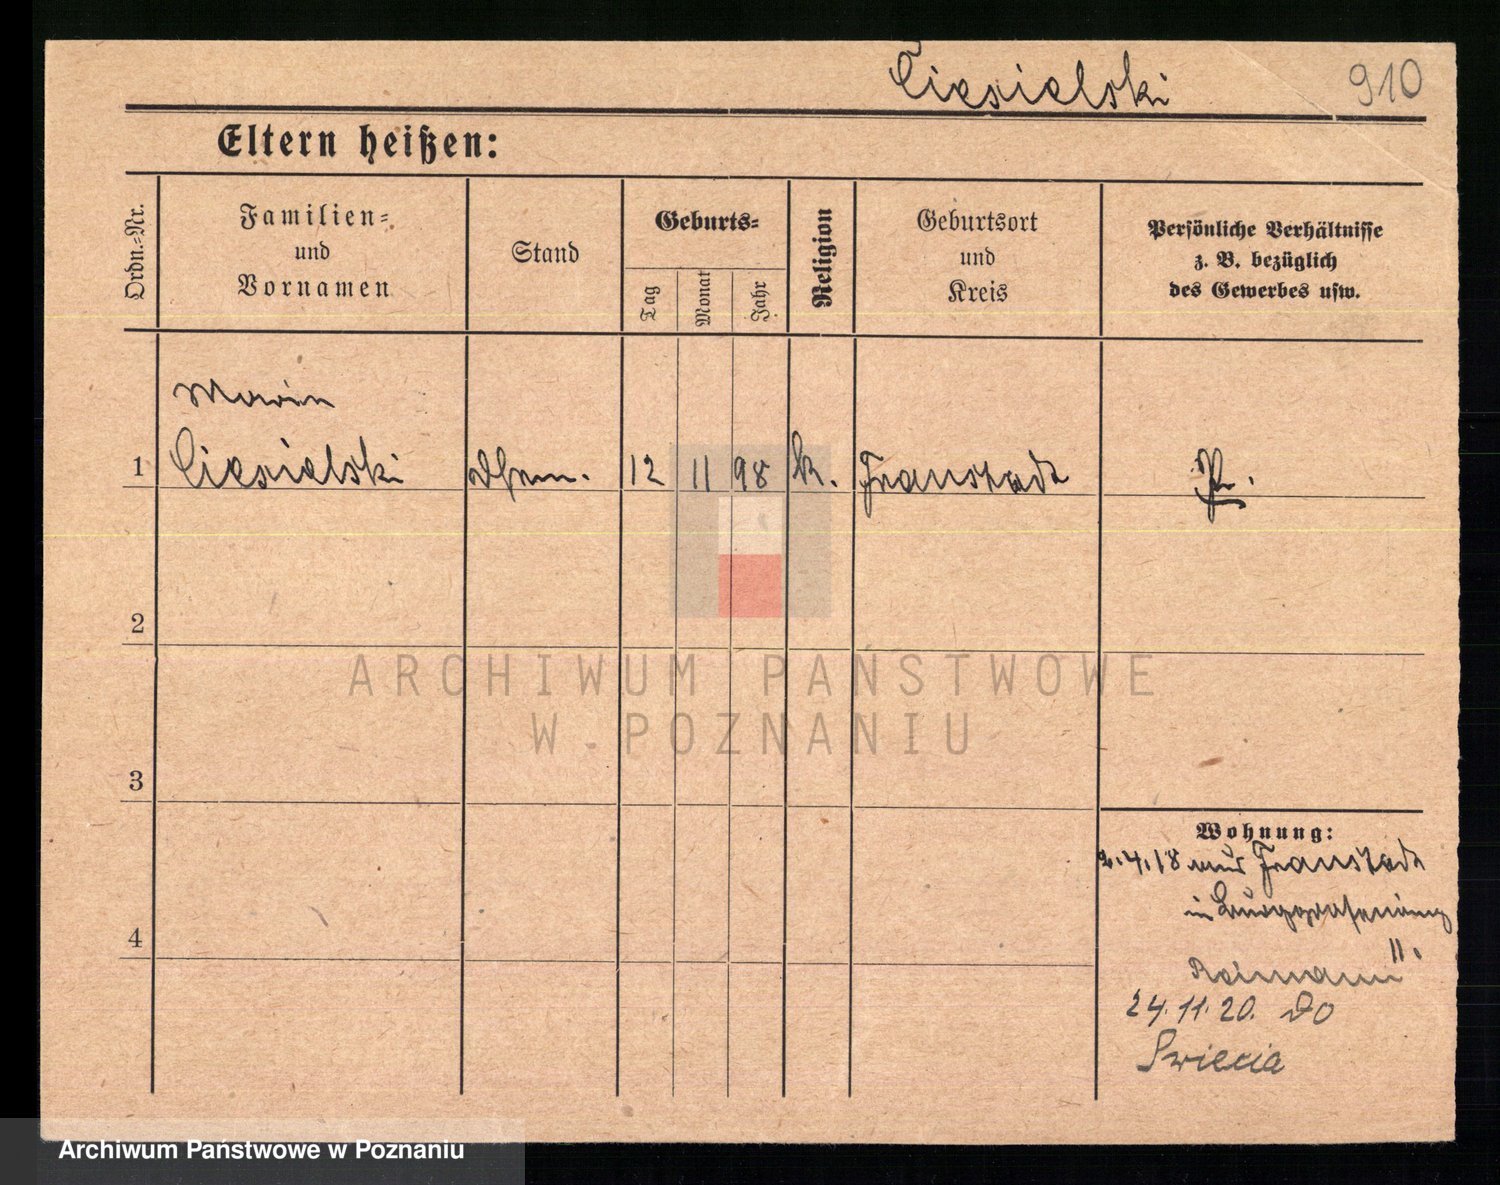 Ciesielski 910
Eltern heißen:
Ordn.=Nr.
Familien=
und
Vornamen
Stand
Geburts=
Tag
Monat
Jahr
Religion
Geburtsort
und
Kreis
Persönliche Verhältnisse
z. B. bezüglich
des Gewerbes usw.
Maria
1 Ciesielski 12 11 98 k. Fraustadt Pr.
2
ARCHIWUM PAŃSTWOWE
W POZNANIU
3
Wohnung:
2.4.18 aus Fraustadt
in
4
11.
Reimann
24.11.20. do
Swiecia
Archiwum Państwowe w Poznaniu